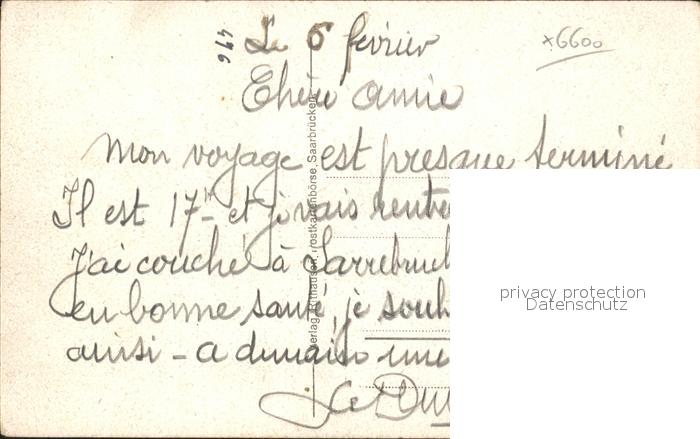 Le 6 février
x6600
Chère amie
Mon voyage est presque terminé
Il est 17h et je vais
J'ai couché à
en bonne santé, je
ainsi – a une
Postkartenbörse, Saarbrücken
privacy protection
Datenschutz